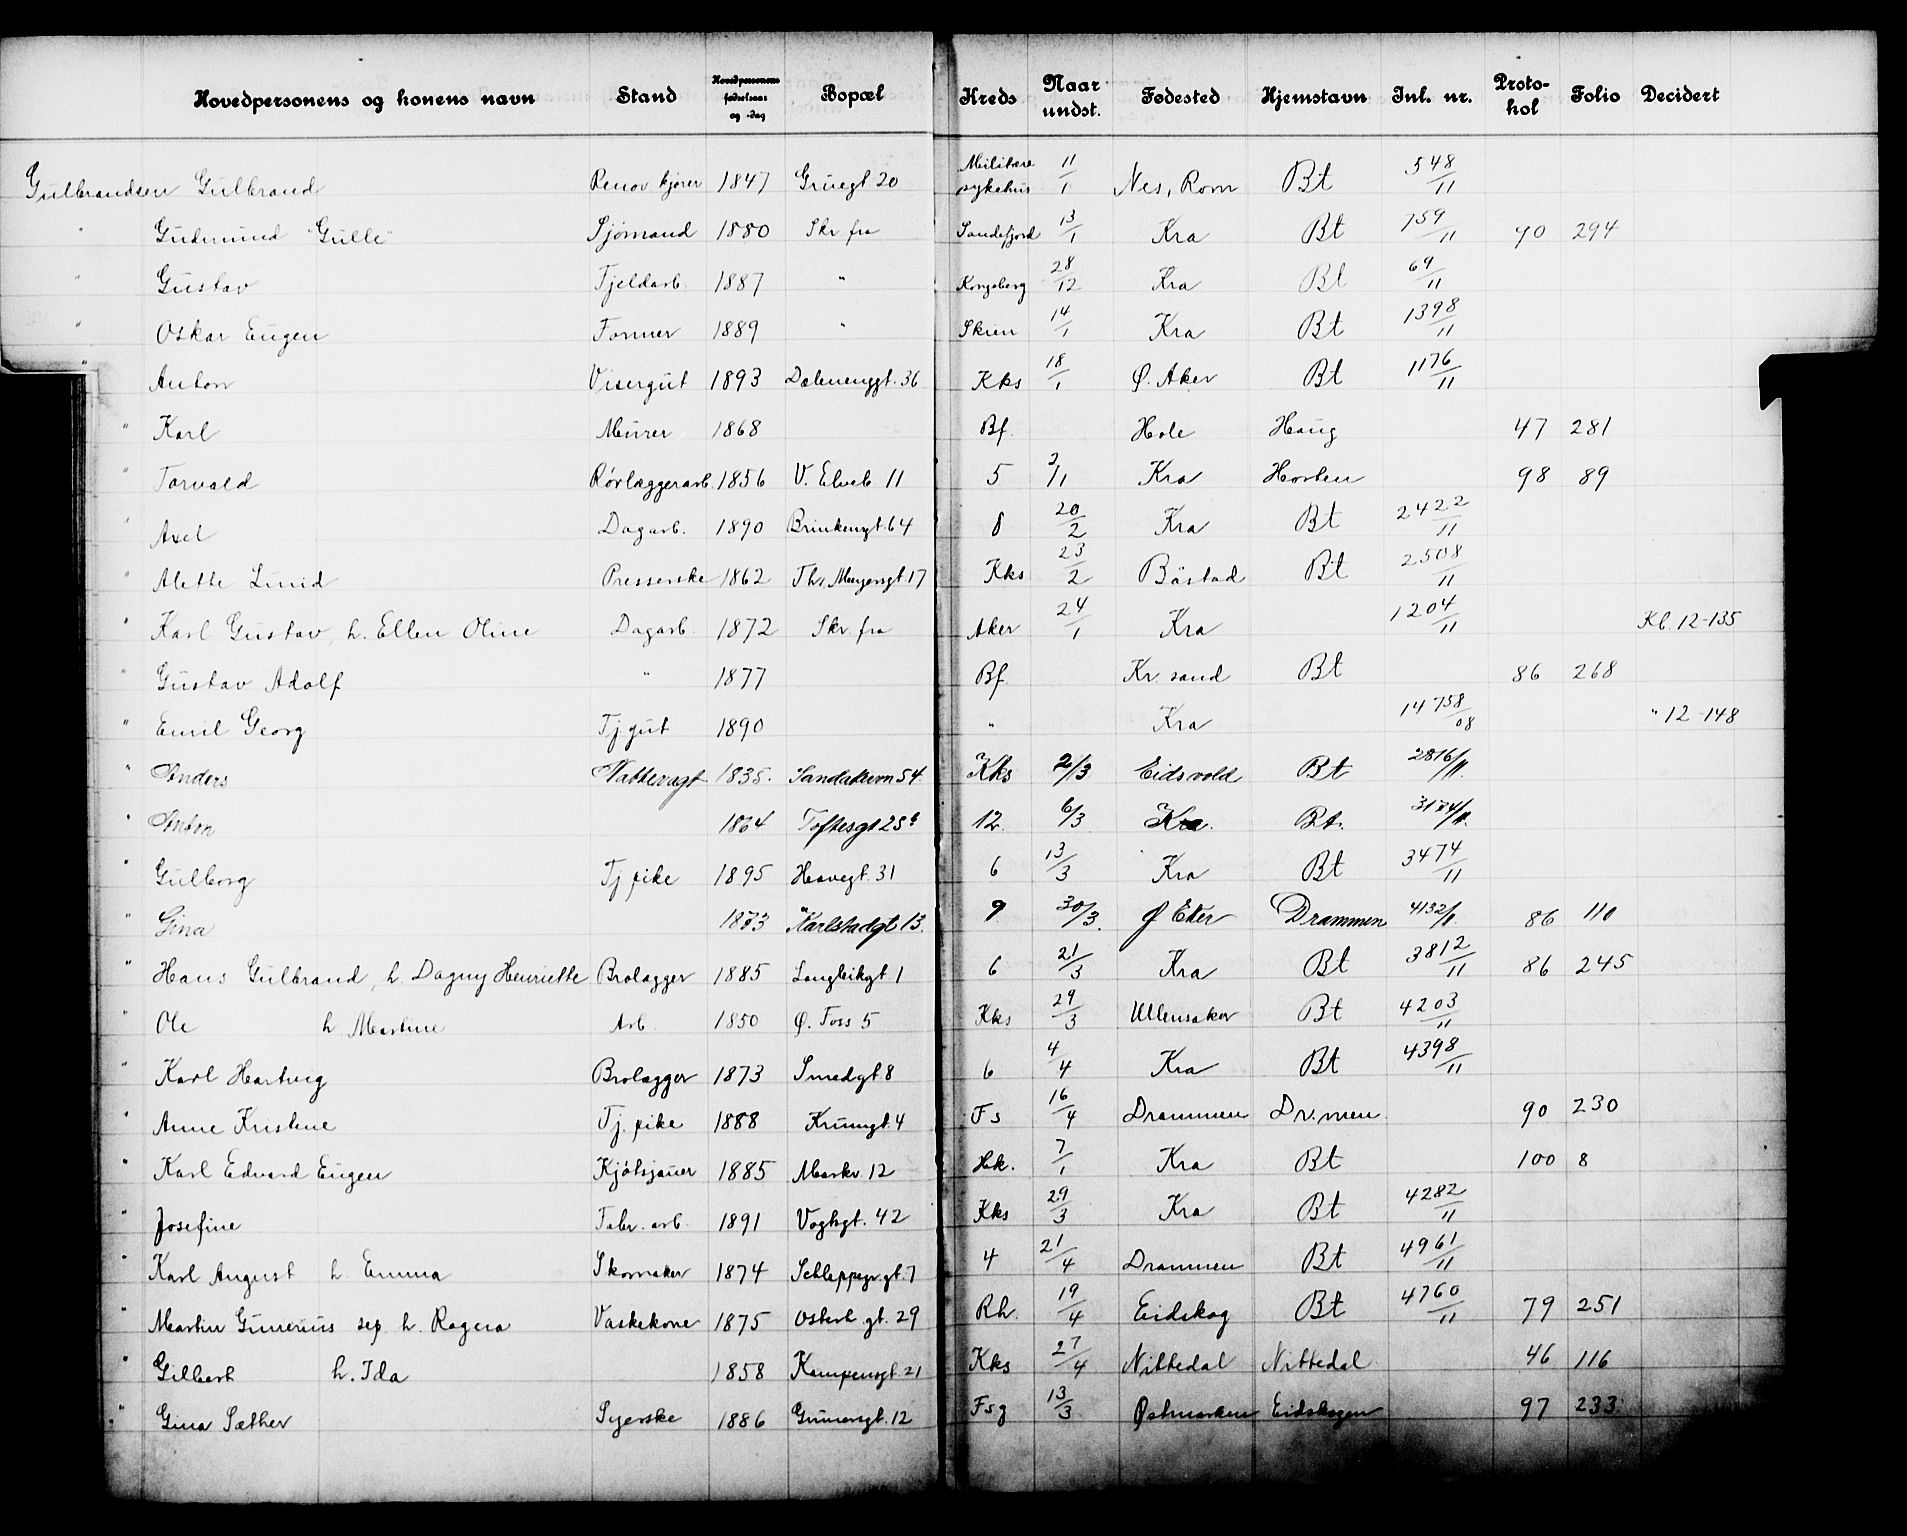 Hovedpersonens og konens navn Stand Hovedpersonens fødselsaar og -dag Bopæl Kreds Naar undst. Fødested Hjemstavn Inl. nr. Proto-kol Folio Decidert
Gulbrandsen Gulbrand Renov kjører 1847 Gruegt 20 Militære sykehus 11/1 Nes, Rom Bt 548/11
" Gudmund "Gulle" Sjømand 1880 Skr. fra Sandefjord 13/1 Kra Bt 759/11 70 294
" Gustav Fjeldarb. 1887 " Kongsberg 28/12 Kra Bt 69/11
" Oskar Eugen Former 1889 " Skien 14/1 Kra Bt 1398/11
" Anton Visergut 1893 Dælenenggt. 36 Kks 18/1 Ø. Aker Bt 1176/11
" Karl Murer 1868 Bf. Hole Haug 47 281
" Torvald Rørlæggerarb. 1856 V. Elveb 11 5 3/11 Kra Horten 98 89
" Axel Dagarb. 1890 Brinkengt. 64 8 20/2 Kra Bt 2422/11
" Alette Lunid Presserske 1862 Ths. Meyersgt 17 Kks 23/2 Båstad Bt 2508/11
" Karl Gustav, h. Ellen Oline Dagarb. 1872 Skr. fra Aker 24/1 Kra 1204/11 Kl. 12-135
" Gustav Adolf " 1877 Bf. Kr. sand Bt 86 268
" Emil Georg Tj gut 1890 " Kra 14758/08 " 12-148
" Anders Nattevagt 1835. Sandakervn 54. Kks 2/3 Eidsvold Bt 2816/11.
" Anton 1864 Toftesgt 25 12. 6/3 Kra. Bt. 3184/11.
" Gulborg Tj pike 1895 Havegt. 31 6 13/3 Kra Bt 3474/11
" Gina 1873 Karlstadgt 13. 9 30/3. Ø Eker Drammen 4132/11 86 110
" Hans Gulbrand, h. Dagny Henriette Brolægger 1885 Langleikgt 1 6 21/3 Kra Bt 3812/11 86 245
" Ole h. Martine Arb. 1850 Ø. Foss 5 Kks 29/3 Ullensaker Bt 4203/11
" Karl Hartvig Brolægger 1873 Smedgt. 8 6 4/4 Kra Bt 4398/11
" Anne Kristine Tj. pike 1888 Krumgt. 4 Fs 16/4 Drammen Dr.men 90 230
" Karl Edvard Eugen Kjøtsjauer 1885 Markv. 12 Hk. 7/1 Kra Bt 100 8
" Josefine Fabr. arb. 1891 Voghtgt. 42 Kks 29/3 Kra Bt 4282/11
" Karl August h. Emma Skomaker 1874 Schleppegr.gt. 7 4 21/4 Drammen Bt 4961/11
" Martin Gunerius sep. h. Ragna Vaskekone 1875 Osterh. gt. 29 Rh. 19/4 Eidskog Bt 4760/11 79 251
" Gilbert h. Ida 1858 Kampensgt. 21 Kks 27/4 Nittedal Nittedal 46 116
" Gina Sæther Syerske 1886 Grünersgt. 12 Fsg 13/3 Østmarken Eidskogen 97 233